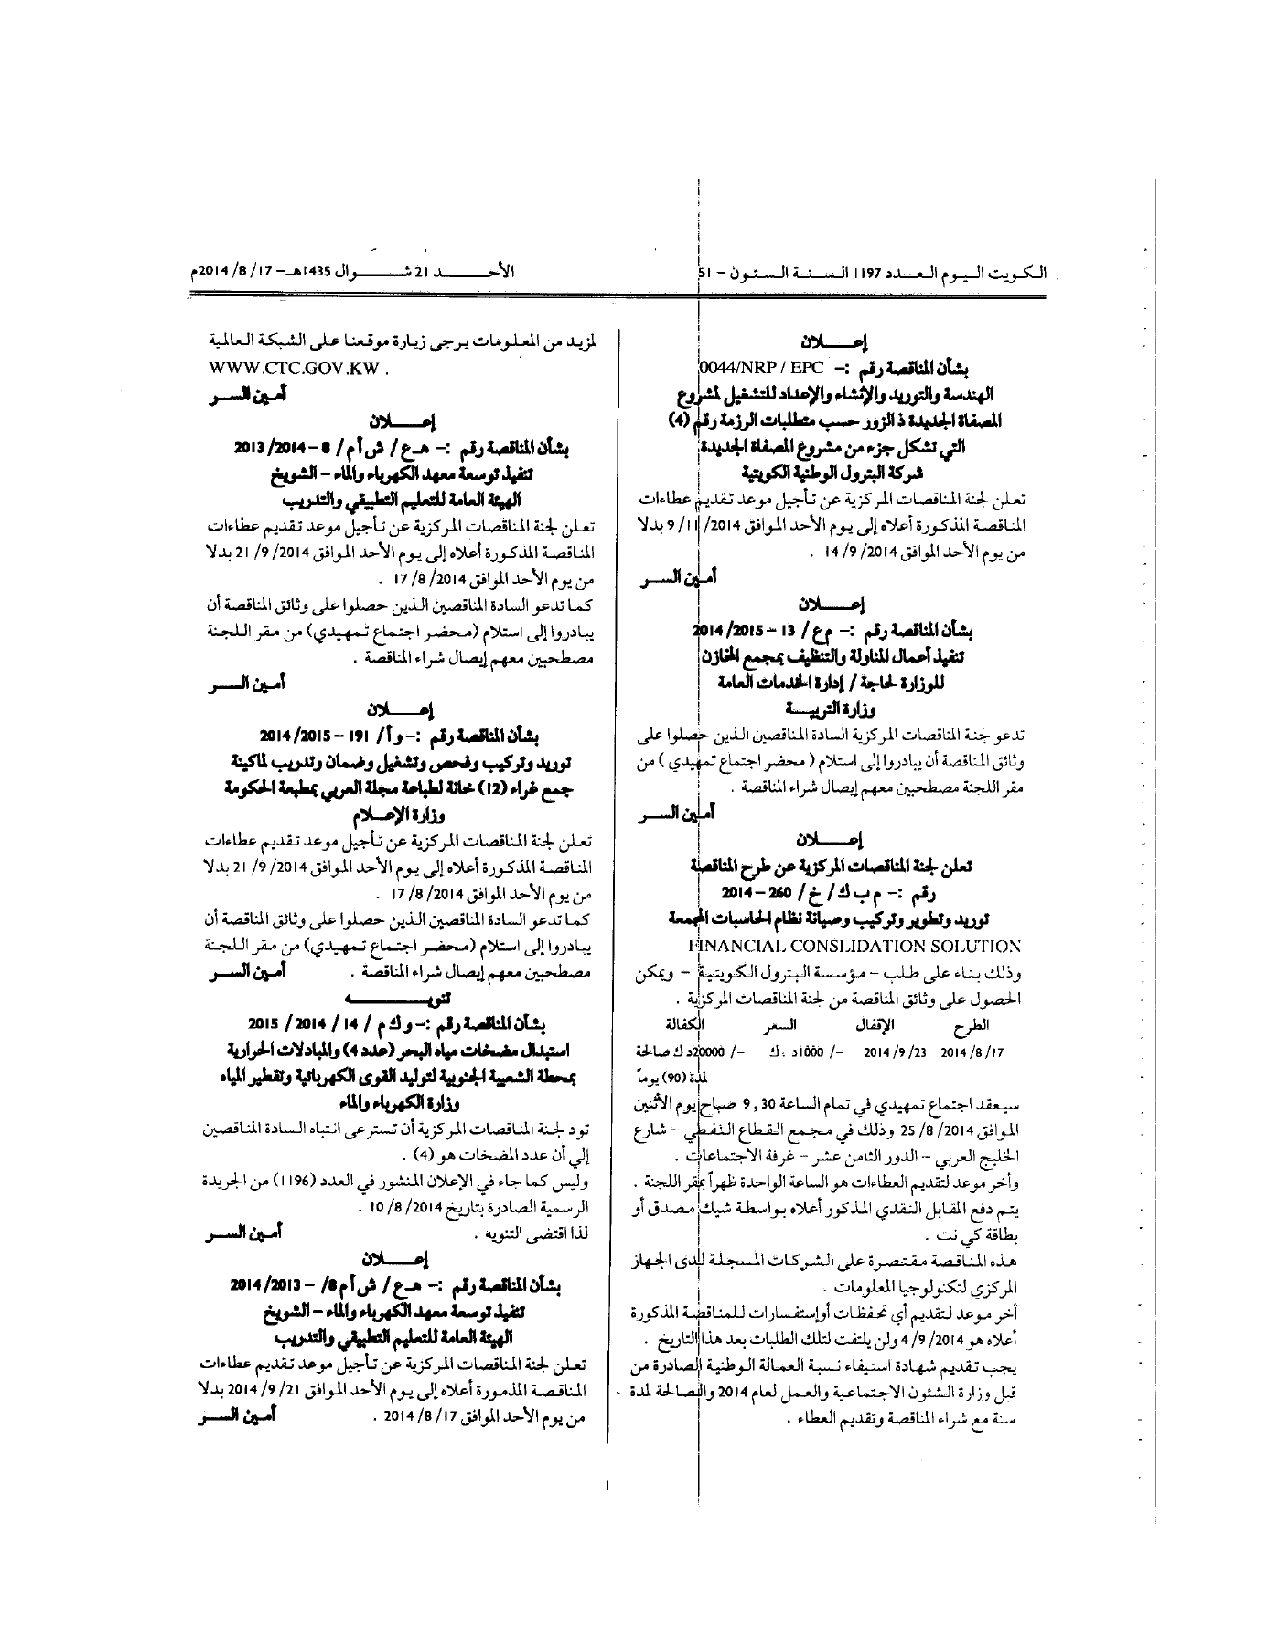 الكويت اليوم العدد 1197 السنة الستون - 51
الأحـــد 21 شـــوال 1435هـ - 17/ 8/ 2014م
إعـــلان
بشأن المناقصة رقم :- 0044/NRP / EPC
الهندسة والتوريد والإنشاء والإعداد للتشغيل لمشروع
المصفاة الجديدة ذ الزور حسب متطلبات الرزمة رقم (4)
التي تشكل جزء من مشروع المصفاة الجديدة
شركة البترول الوطنية الكويتية
تعلن لجنة المناقصات المركزية عن تأجيل موعد تقديم عطاءات
المناقصة المذكورة أعلاه إلى يوم الأحد الموافق 2014/ 11/ 9 بدلا
من يوم الأحد الموافق 2014/ 9/ 14 .
أمين الســر
إعـــلان
بشأن المناقصة رقم :- م ع/ 13 - 2014/2015
تنفيذ أعمال المناولة والتنظيف بمجمع المخازن
للوزارة لحاجة / إدارة الخدمات العامة
وزارة التربيـــة
تدعو جنة المناقصات المركزية السادة المناقصين الذين حصلوا على
وثائق المناقصة أن يبادروا إلى استلام ( محضر اجتماع تمهيدي ) من
مقر اللجنة مصطحبين معهم إيصال شراء المناقصة .
أمين الســر
إعـــلان
تعلن لجنة المناقصات المركزية عن طرح المناقصة
رقم :- م ب ك/ خ/ 260-2014
توريد وتطوير وتركيب وصيانة نظام الحاسبات المجمعة
FINANCIAL CONSLIDATION SOLUTION
وذلك بناء على طلب - مؤسسة البترول الكويتية - ويمكن
الحصول على وثائق المناقصة من لجنة المناقصات المركزية .
الطرح الإقفال السعر الكفالة
2014/8/17 2014/9/23 -/1000د .ك -/20000د ك صالحة
لمدة (90) يوماً
سيعقد اجتماع تمهيدي في تمام الساعة 9,30 صباح يوم الأثنين
الموافق 2014/ 8/ 25 وذلك في مجمع القطاع النفطي - شارع
الخليج العربي - الدور الثامن عشر - غرفة الاجتماعات .
وأخر موعد لتقديم العطاءات هو الساعة الواحدة ظهراً بمقر اللجنة .
يتم دفع المقابل النقدي المذكور أعلاه بواسطة شيك مصدق أو
بطاقة كي نت .
هذه المناقصة مقتصرة على الشركات المسجلة لدى الجهاز
المركزي لتكنولوجيا المعلومات .
أخر موعد لتقديم أي تحفظات أو إستفسارات للمناقصة المذكورة
أعلاه هو 2014/ 9/ 4 ولن يلتفت لتلك الطلبات بعد هذا التاريخ .
يجب تقديم شهادة استيفاء نسبة العمالة الوطنية الصادرة من
قبل وزارة الشئون الاجتماعية والعمل لعام 2014 والصالحة لمدة
سنة مع شراء المناقصة وتقديم العطاء .
لمزيد من المعلومات يرجى زيارة موقعنا على الشبكة العالمية
WWW.CTC.GOV.KW .
أمين الســر
إعـــلان
بشأن المناقصة رقم :- هـ ع/ ش أم/ 8-2013/2014
تنفيذ توسعة معهد الكهرباء والماء - الشويخ
الهيئة العامة للتعليم التطبيقي والتدريب
تعلن لجنة المناقصات المركزية عن تأجيل موعد تقديم عطاءات
المناقصة المذكورة أعلاه إلى يوم الأحد الموافق 2014/ 9/ 21 بدلا
من يوم الأحد الموافق 2014/ 8/ 17 .
كما تدعو السادة المناقصين الذين حصلوا على وثائق المناقصة أن
يبادروا إلى استلام (محضر اجتماع تمهيدي) من مقر اللجنة
مصطحبين معهم إيصال شراء المناقصة .
أمين الســر
إعـــلان
بشأن المناقصة رقم :- وأ/ 191 - 2014/2015
توريد وتركيب وفحص وتشغيل وضمان وتدريب لماكينة
جمع غراء (12) خانة لطباعة مجلة العربي بمطبعة الحكومة
وزارة الإعـــلام
تعلن لجنة المناقصات المركزية عن تأجيل موعد تقديم عطاءات
المناقصة المذكورة أعلاه إلى يوم الأحد الموافق 2014/ 9/ 21 بدلا
من يوم الأحد الموافق 2014/ 8/ 17 .
كما تدعو السادة المناقصين الذين حصلوا على وثائق المناقصة أن
يبادروا إلى استلام (محضر اجتماع تمهيدي) من مقر اللجنة
مصطحبين معهم إيصال شراء المناقصة . أمين الســر
تنويـــــه
بشأن المناقصة رقم :- وك م / 14 / 2014/ 2015
استبدال مضخات مياه البحر (عدد 4) والمبادلات الحرارية
بمحطة الشعيبة الجنوبية لتوليد القوى الكهربائية وتقطير المياه
وزارة الكهرباء والماء
تود لجنة المناقصات المركزية أن تسترعى انتباه السادة المناقصين
إلى أن عدد المضخات هو (4) .
وليس كما جاء في الإعلان المنشور في العدد (1196) من الجريدة
الرسمية الصادرة بتاريخ 2014/ 8/ 10 .
لذا اقتضى التنويه . أمين الســر
إعـــلان
بشأن المناقصة رقم :- هـ ع/ ش أم8/ - 2014/2013
تنفيذ توسعة معهد الكهرباء والماء - الشويخ
الهيئة العامة للتعليم التطبيقي والتدريب
تعلن لجنة المناقصات المركزية عن تأجيل موعد تقديم عطاءات
المناقصة المذمورة أعلاه إلى يوم الأحد الموافق 2014/9/21 بدلا
من يوم الأحد الموافق 2014/8/17 . أمين الســر